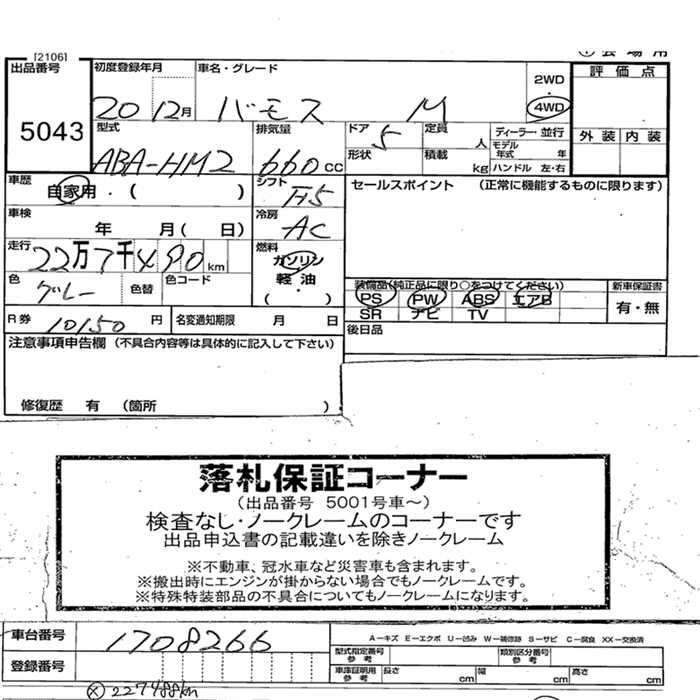 [2106]
出品番号 5043
初度登録年月 20 12月
車名・グレード バモス M
2WD・4WD
評価点
外装 内装
型式 ABA-HM2
排気量 660cc
ドア 5 形状
定員 人 積載 kg
ディーラー・並行 モデル年式 年 ハンドル 左・右
車歴 自家用・( )
シフト F5
セールスポイント (正常に機能するものに限ります)
車検 年 月(日)
冷房 AC
走行 22万7千490km
燃料 ガソリン 軽油・( )
色 グレー 色替 色コード
装備品(純正品に限り○をつけてください) 新車保証書
PS PW ABS エアB 有・無
SR ナビ TV
R券 10150円 名変通知期限 月 日
後日品
注意事項申告欄(不具合内容等は具体的に記入して下さい)
修復歴 有 (箇所 )
落札保証コーナー
(出品番号 5001号車~)
検査なし・ノークレームのコーナーです
出品申込書の記載違いを除きノークレーム
※不動車、冠水車など災害車も含まれます。
※搬出時にエンジンが掛からない場合でもノークレームです。
※特殊特装部品の不具合についてもノークレームになります。
車台番号 1708266
A-キズ E-エクボ U-凹み W-補修跡 S-サビ C-腐食 XX-交換済
登録番号
型式指定番号 参考 類別区分番号 参考
車庫証明用 参考 長さ cm 幅 cm 高さ cm
ⓧ227488km